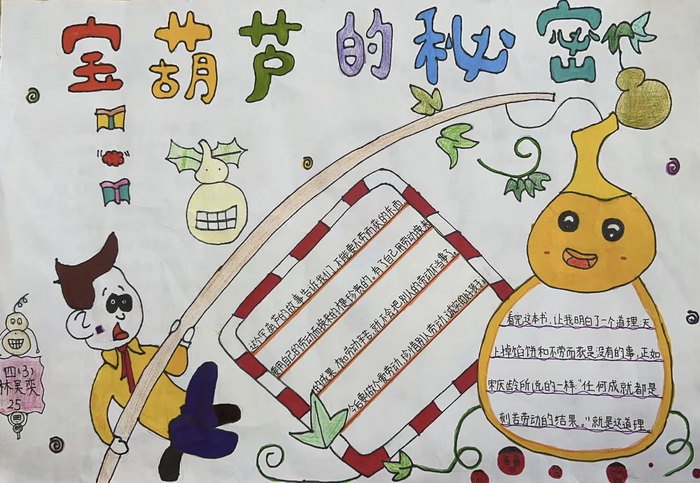 宝葫芦的秘密
四(3)
林昊奕
25
这个宝葫芦的故事告诉我们,不能要不劳而获的东西
要自己的劳动而换来的才是珍贵的。有了自己用劳动换来
的成果
今后要做个爱劳动
看完这本书,让我明白了一个道理:天
上掉馅饼和不劳而获是没有的事,正如
宋庆龄所说的一样"任何成就都是
刻苦劳动的结果。"就是这道理。